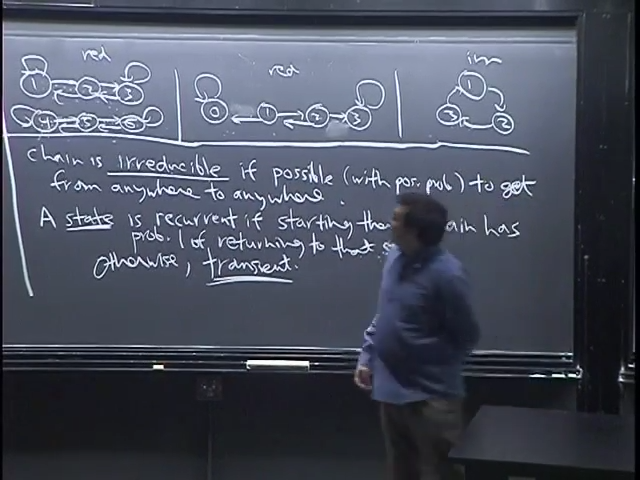 red
red
irr
1 2 3
4 5 6
0 1 2 3
1
3 2
chain is irreducible if possible (with pos. prob) to get
from anywhere to anywhere.
A state is recurrent if starting there, chain has
prob. 1 of returning to that
otherwise, transient.